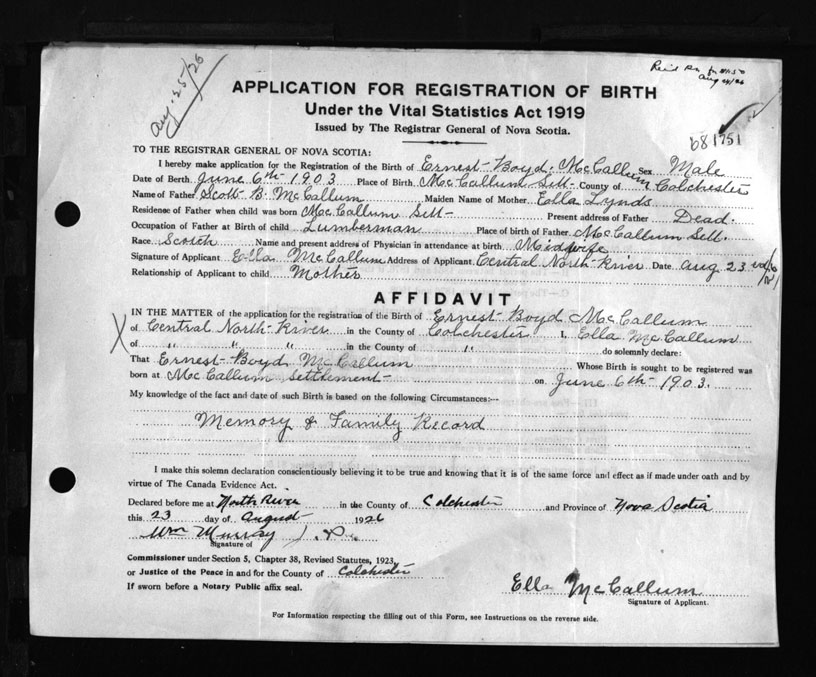 Aug. 25/26
Rec'd
Aug 24/26
APPLICATION FOR REGISTRATION OF BIRTH
Under the Vital Statistics Act 1919
Issued by The Registrar General of Nova Scotia.
681751
TO THE REGISTRAR GENERAL OF NOVA SCOTIA:
I hereby make application for the Registration of the Birth of Ernest Boyd McCallum Sex Male
Date of Birth June 6th 1903 Place of Birth McCallum Sett. County of Colchester
Name of Father Scott B. McCallum Maiden Name of Mother Ella Lynds
Residence of Father when child was born McCallum Sett Present address of Father Dead.
Occupation of Father at Birth of child Lumberman Place of birth of Father McCallum Sett.
Race Scotch Name and present address of Physician in attendance at birth Midwife
Signature of Applicant Ella McCallum Address of Applicant Central North River Date Aug 23
Relationship of Applicant to child Mother
AFFIDAVIT
IN THE MATTER of the application for the registration of the Birth of Ernest Boyd McCallum
X of Central North River in the County of Colchester I, Ella McCallum
of " " " in the County of " do solemnly declare:
That Ernest Boyd McCallum Whose Birth is sought to be registered was
born at McCallum Settlement on June 6th 1903.
My knowledge of the fact and date of such Birth is based on the following Circumstances:--
Memory & Family Record
I make this solemn declaration conscientiously believing it to be true and knowing that it is of the same force and effect as if made under oath and by
virtue of The Canada Evidence Act.
Declared before me at North River in the County of Colchester and Province of Nova Scotia
this 23 day of August 1926
Wm Murray J. P.
Signature of
Commissioner under Section 5, Chapter 38, Revised Statutes, 1923,
or Justice of the Peace in and for the County of Colchester
If sworn before a Notary Public affix seal.
Ella McCallum
Signature of Applicant.
For Information respecting the filling out of this Form, see Instructions on the reverse side.